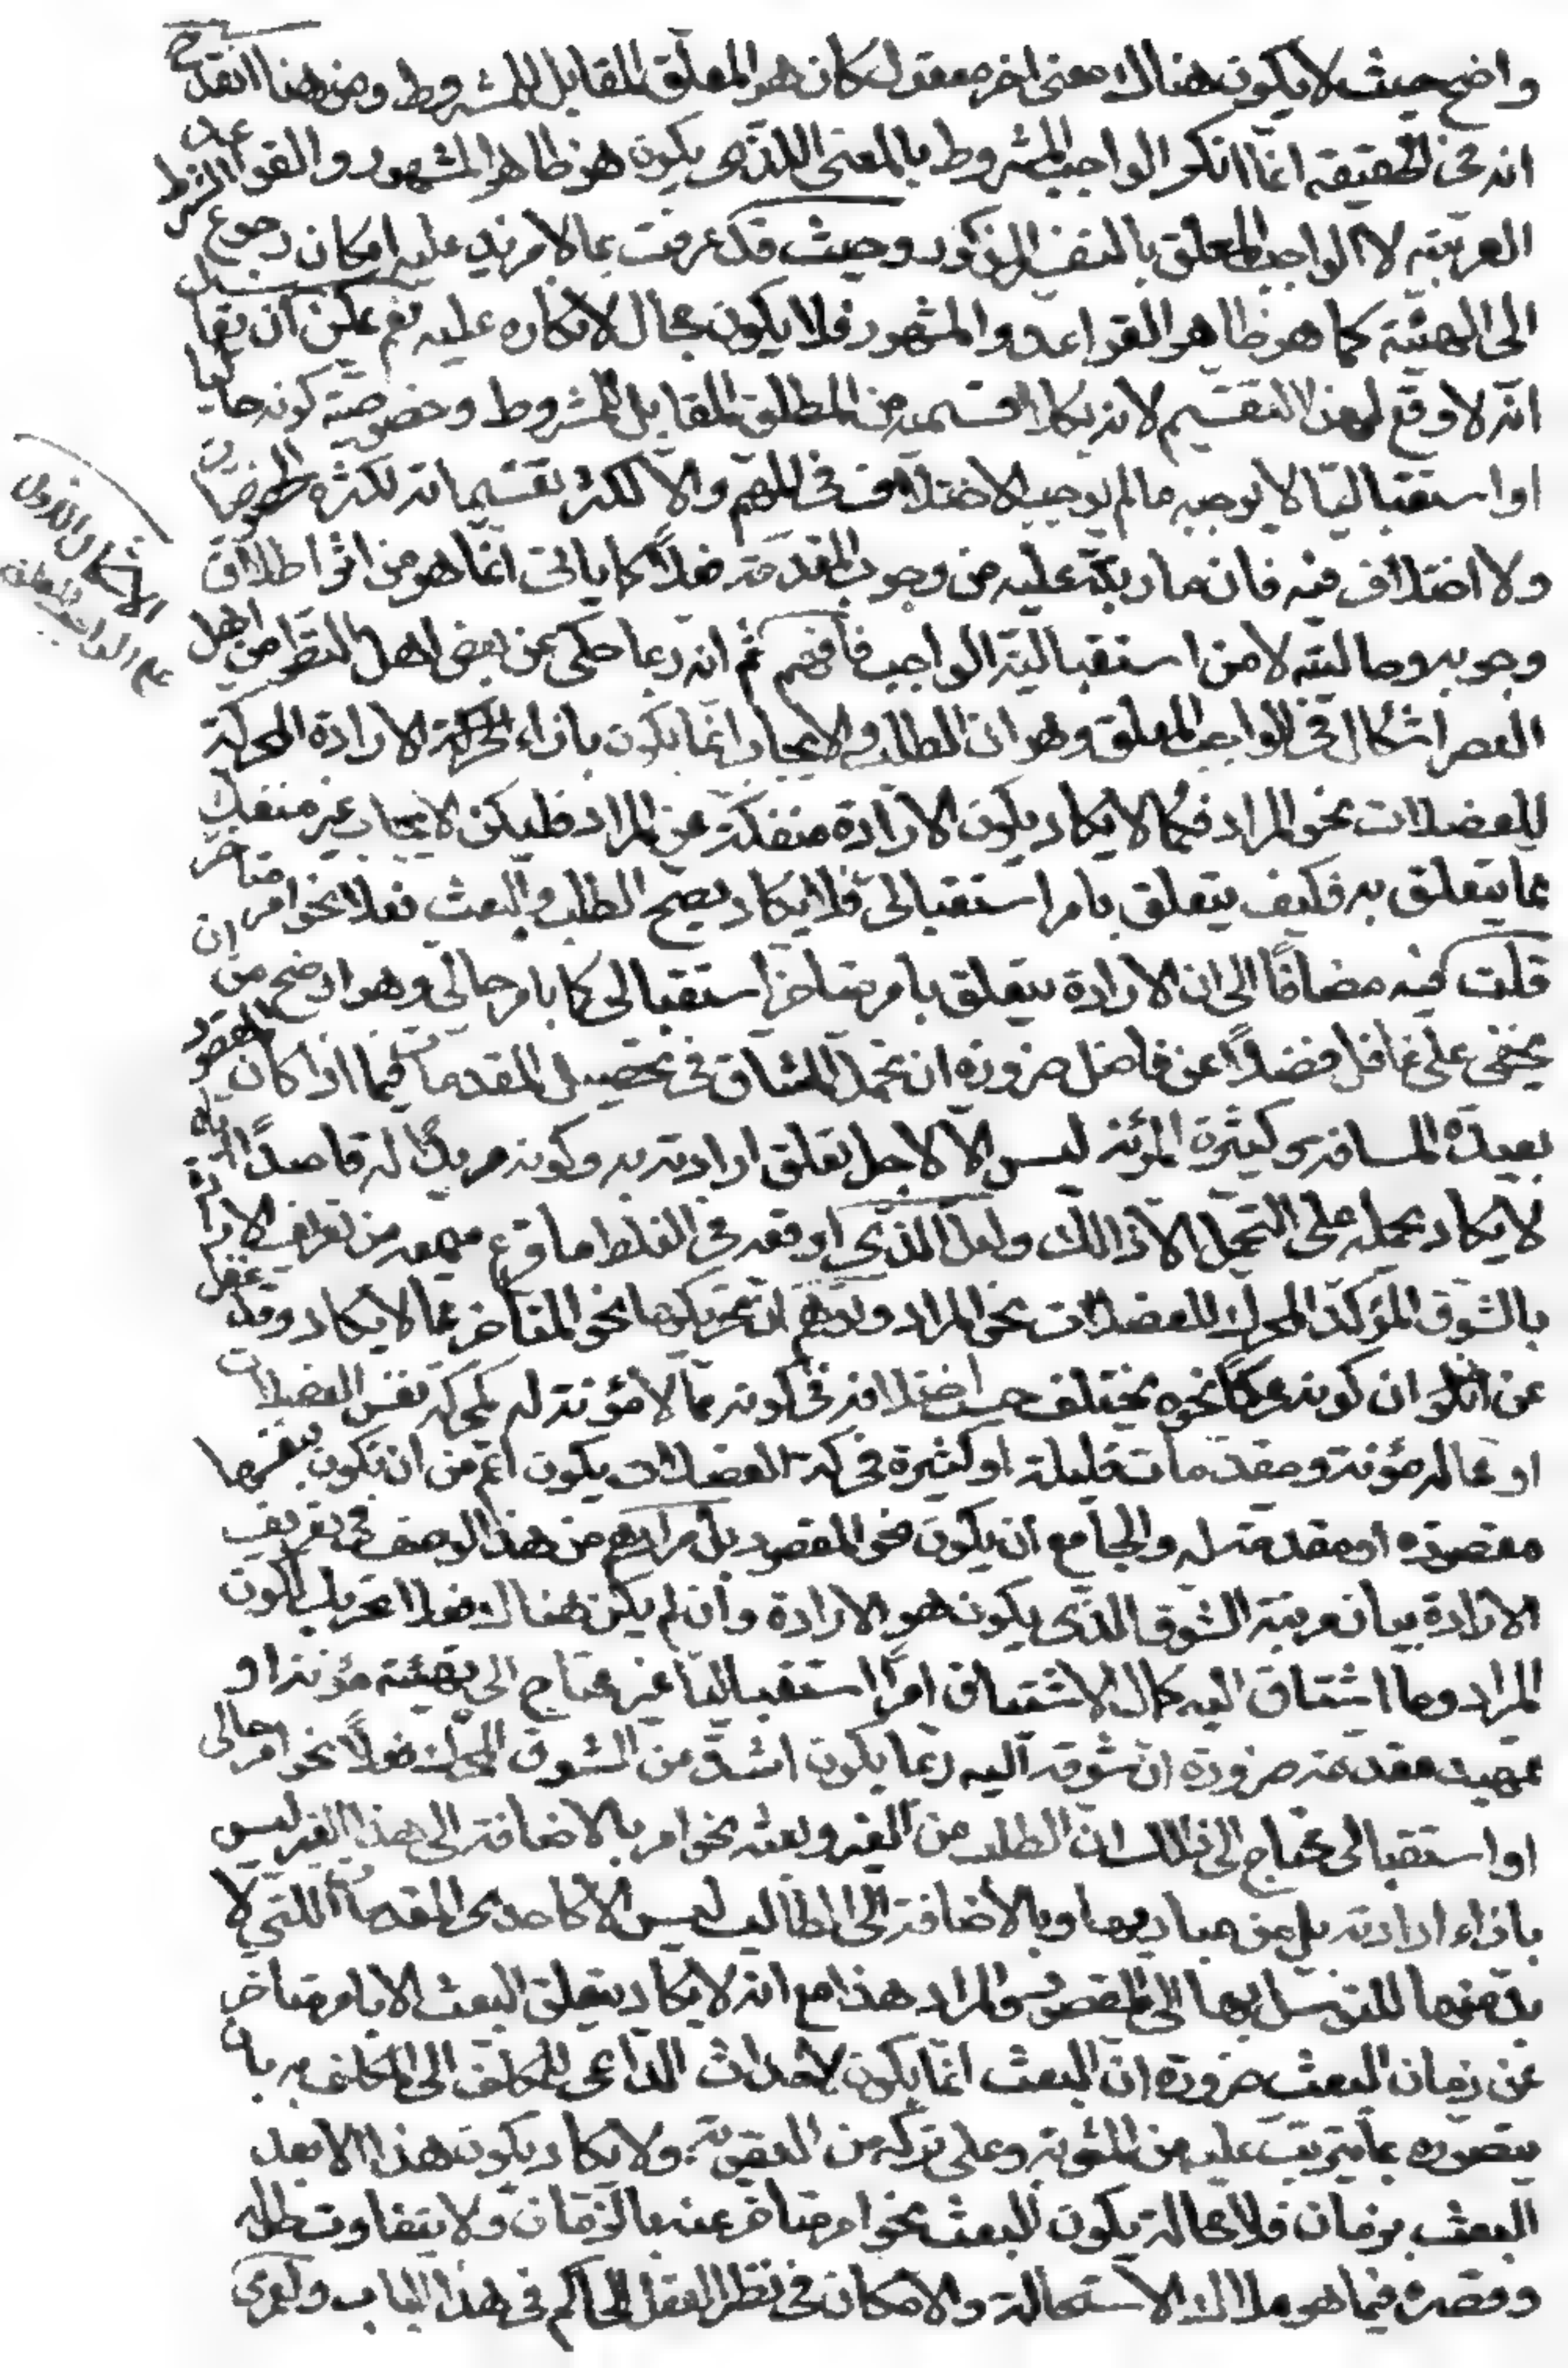 واضح حيث لا يكون هناك معنى اخر معقول كان هو المعلق المقابل للمشروط ومن هنا انقدح
انه فى الحقيقة انما انكر الواجب المشروط بالمعنى اللذى يكون هو ظاهر المشهور والقواعد
العربية لا الواجب المعلق بالتفسير المذكور وحيث قد عرفت بما لا مزيد عليه امكان رجوع الشرط
الى الهيئة كما هو ظاهر القواعد والمشهور فلا يكون مجال لانكاره عليه نعم يمكن ان يقال
انه لا وقع لهذا التقسيم لانه بكلا قسميه من المطلق المقابل للمشروط وخصوصية كونه حاليا
او استقباليا لا يوجبه ما لم يوجب الاختلاف فى المهم والا لكثر تقسيماته لكثرة الخصوصيات
ولا اختلاف فيه فان ما رتبه عليه من وجوب المقدمة فعلا كما ياتى انما هو من اثر اطلاق
وجوبه وحاليته لا من استقبالية الواجب فافهم ثم انه ربما حكى عن بعض اهل النظر من اهل
العصر اشكال فى الواجب المعلق وهو ان الطلب والايجاب انما يكون بازاء الحركة الارادة المحركة
للعضلات نحو المراد فكما لا يكاد يكون الارادة منفكة عن المراد فليكن الايجاب غير منفك
عما يتعلق به فكيف يتعلق بامر استقبالى فلا يكاد يصح الطلب والبعث فعلا نحو امر متاخر
قلت فيه مضافا الى ان الارادة يتعلق بامر متاخر استقبالى كما بامر حالى وهو اوضح من ان
يخفى على غافل فضلا عن فاضل ضرورة ان تحمل المشاق فى تحصيل المقدمات فيما اذا كان المقصود
بعيدة المسافة وكثيرة المؤنة ليس الا لاجل تعلق ارادته به وكونه مريدا له قاصدا اياه
لا يكاد يحمله على التحمل الا ذالك ولعل اللذى اوقعه فى الغلط ما قرع سمعه من تعريف الارادة
بالشوق المؤكد المحرك للعضلات نحو المراد وتوهم ان تحريكها نحو المتاخر مما لا يكاد وقد غفل
عن ان كونه محركا نحوه يختلف حسب اختلافه فى كونه مما لا مؤنة له كحركة نفس العضلات
او مما له مؤنة ومقدمات قليلة او كثيرة فحركة العضلات يكون اعم من ان تكون بنفسها
مقصودة او مقدمة له والجامع ان يكون نحو المقصود بل مرادهم من هذا الوصف فى تعريف
الارادة بيان مرتبة الشوق الذى يكون هو الارادة وان لم يكن هناك فعلا تحريك لكون
المراد وما اشتاق اليه كمال الاشتياق امرا استقباليا غير محتاج الى تهيئة مؤنة او
تمهيد مقدمة ضرورة ان شوقه اليه ربما يكون اشد من الشوق المحرك فعلا نحو امر حالى
او استقبالى محتاج الى ذالك ان الطلب من الغير وبعثه نحو امر بالاضافة الى هذا الغير ليس
بازاء ارادته بل من مباديها وبالاضافة الى الطالب ليس الا كاحدى المقدمات اللتى لا
بد منها للتوسل بها الى المقصود والمراد هذا مع انه لا يكاد يتعلق البعث الا بامر متاخر
عن زمان البعث ضرورة ان البعث انما يكون لاحداث الداعى للمكلف الى المكلف به بان
يتصوره بما يترتب عليه من المثوبة وعلى تركه من العقوبة ولا يكاد يكون هذا الا بعد
البعث بزمان فلا محالة يكون البعث نحو امر متاخر عنه بالزمان ولا يتفاوت طوله
وقصره فيما هو ملاك الاستحالة والامكان فى نظر العقل الحاكم فى هذا الباب ولعمرى
الاشكال الاول
على الواجب المعلق